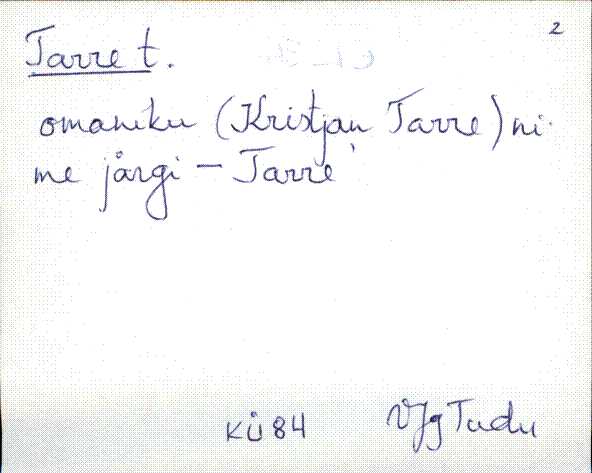 2
Tarre t.
omaniku (Kristjan Tarre) ni-
me järgi – Tarre
KÜ 84 VJg Tudu